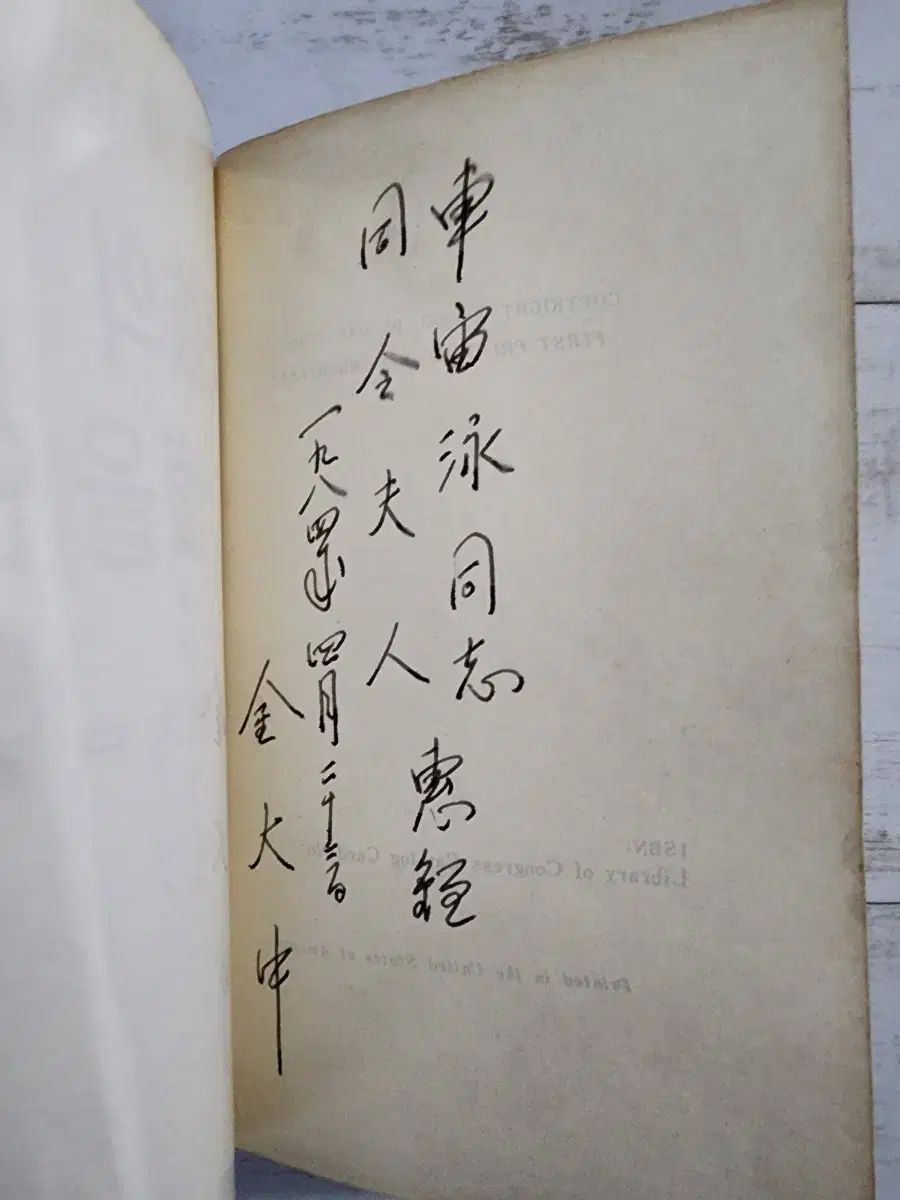 車宙泳同志
同令夫人 惠鑑
一九八四年四月二十三日
金大中
COPYRIGHT
ISBN:
Library of Congress Catalog Card No:
Printed in the United States of